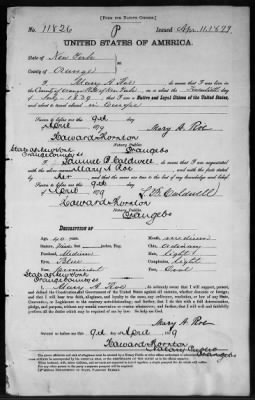 [FORM FOR NATIVE CITIZEN.]
No. 11826 P Issued Apr. 11, 1879
UNITED STATES OF AMERICA.
State of New York
County of Orange
I, Mary A. Roe do swear that I was born in the
County of Orange State of New York, on or about the
of July 1839 that I am a Native and Loyal Citizen of the United States,
and about to travel abroad in Europe
Sworn to before me this 9th day
of April 1879 Mary A. Roe
Howard Thornton
Notary Public,
Orange Co
State of New York
Orange County SS
I, Samuel B. Caldwell do swear that I am acquainted
with the above-named Mary A. Roe and with the facts stated
by her and that the same are true to the best of my knowledge and belief
Sworn to before me this 9th day
of April 1879 S. B. Caldwell
Howard Thornton
Notary Public,
Orange Co
DESCRIPTION OF
Age: 40 years Mouth: medium
Stature: five feet inches, Eng. Chin: ordinary
Forehead: Medium Hair: light
Eyes: Blue Complexion: light
Nose: prominent Face: Oval
State of New York
Orange County SS
I, Mary A. Roe do solemnly swear that I will support, protect,
and defend the Constitution and Government of the United States against all enemies, whether domestic or foreign;
and that I will bear true faith, allegiance, and loyalty to the same, any ordinance, resolution, or law of any State,
Convention, or Legislature to the contrary notwithstanding; and further, that I do this with a full determination,
pledge, and purpose, without any mental reservation or evasion whatsoever; and further, that I will well and faithfully
perform all the duties which may be required of me by law: So help me God.
Mary A. Roe
Sworn to before me this 9th day of April 1879
Howard Thornton
Notary Public
Orange Co